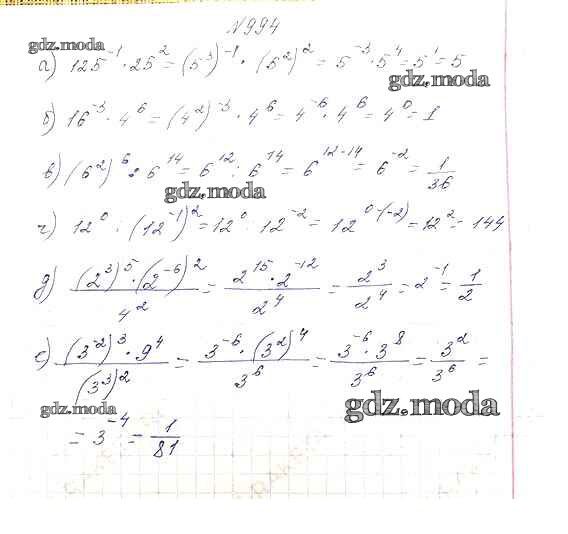 №994
gdz.moda
а) 125⁻¹ · 25² = (5³)⁻¹ · (5²)² = 5⁻³ · 5⁴ = 5¹ = 5
gdz.moda
б) 16⁻³ · 4⁶ = (4²)⁻³ · 4⁶ = 4⁻⁶ · 4⁶ = 4⁰ = 1
в) (6²)⁶ : 6¹⁴ = 6¹² : 6¹⁴ = 6¹²⁻¹⁴ = 6⁻² = 1/36
gdz.moda
г) 12⁰ : (12⁻¹)² = 12⁰ : 12⁻² = 12⁰⁻⁽⁻²⁾ = 12² = 144
д) (2³)⁵ · (2⁻⁶)² / 4² = 2¹⁵ · 2⁻¹² / 2⁴ = 2³ / 2⁴ = 2⁻¹ = 1/2
е) (3⁻²)³ · 9⁴ / (3³)² = 3⁻⁶ · (3²)⁴ / 3⁶ = 3⁻⁶ · 3⁸ / 3⁶ = 3² / 3⁶ =
gdz.moda
gdz.moda
= 3⁻⁴ = 1/81